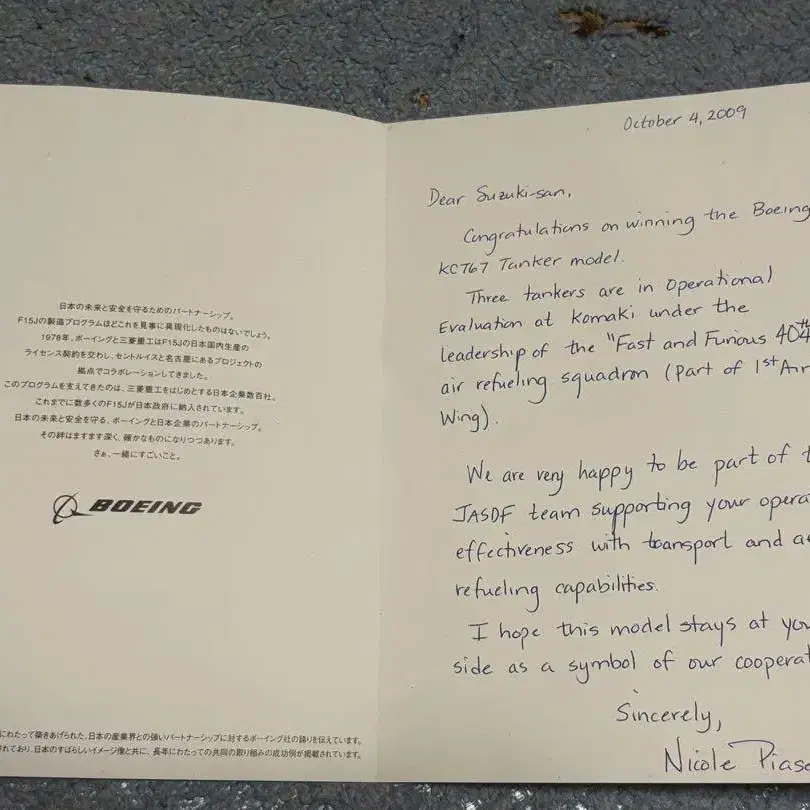 日本の未来と安全を守るためのパートナーシップ。
F15Jの製造プログラムほどこれを見事に具現化したものはないでしょう。
1978年、ボーイングと三菱重工はF15Jの日本国内生産の
ライセンス契約を交わし、セントルイスと名古屋にあるプロジェクトの
拠点でコラボレーションしてきました。
このプログラムを支えてきたのは、三菱重工をはじめとする日本企業数百社。
これまでに数多くのF15Jが日本政府に納入されています。
日本の未来と安全を守る、ボーイングと日本企業のパートナーシップ。
その絆はますます深く、確かなものになりつつあります。
さぁ、一緒にすごいこと。
BOEING
にわたって築きあげられた、日本の産業界との強いパートナーシップに対するボーイング社の誇りを伝えています。
れており、日本のすばらしいイメージ像と共に、長年にわたっての共同の取り組みの成功例が掲載されています。
October 4, 2009
Dear Suzuki-san,
Congratulations on winning the Boeing
KC767 Tanker model.
Three tankers are in Operational
Evaluation at Komaki under the
leadership of the "Fast and Furious 404th
air refueling squadron (Part of 1st Air
Wing).
We are very happy to be part of
JASDF team supporting your
effectiveness with transport and
refueling capabilities.
I hope this model stays at
side as a symbol of our
Sincerely,
Nicole